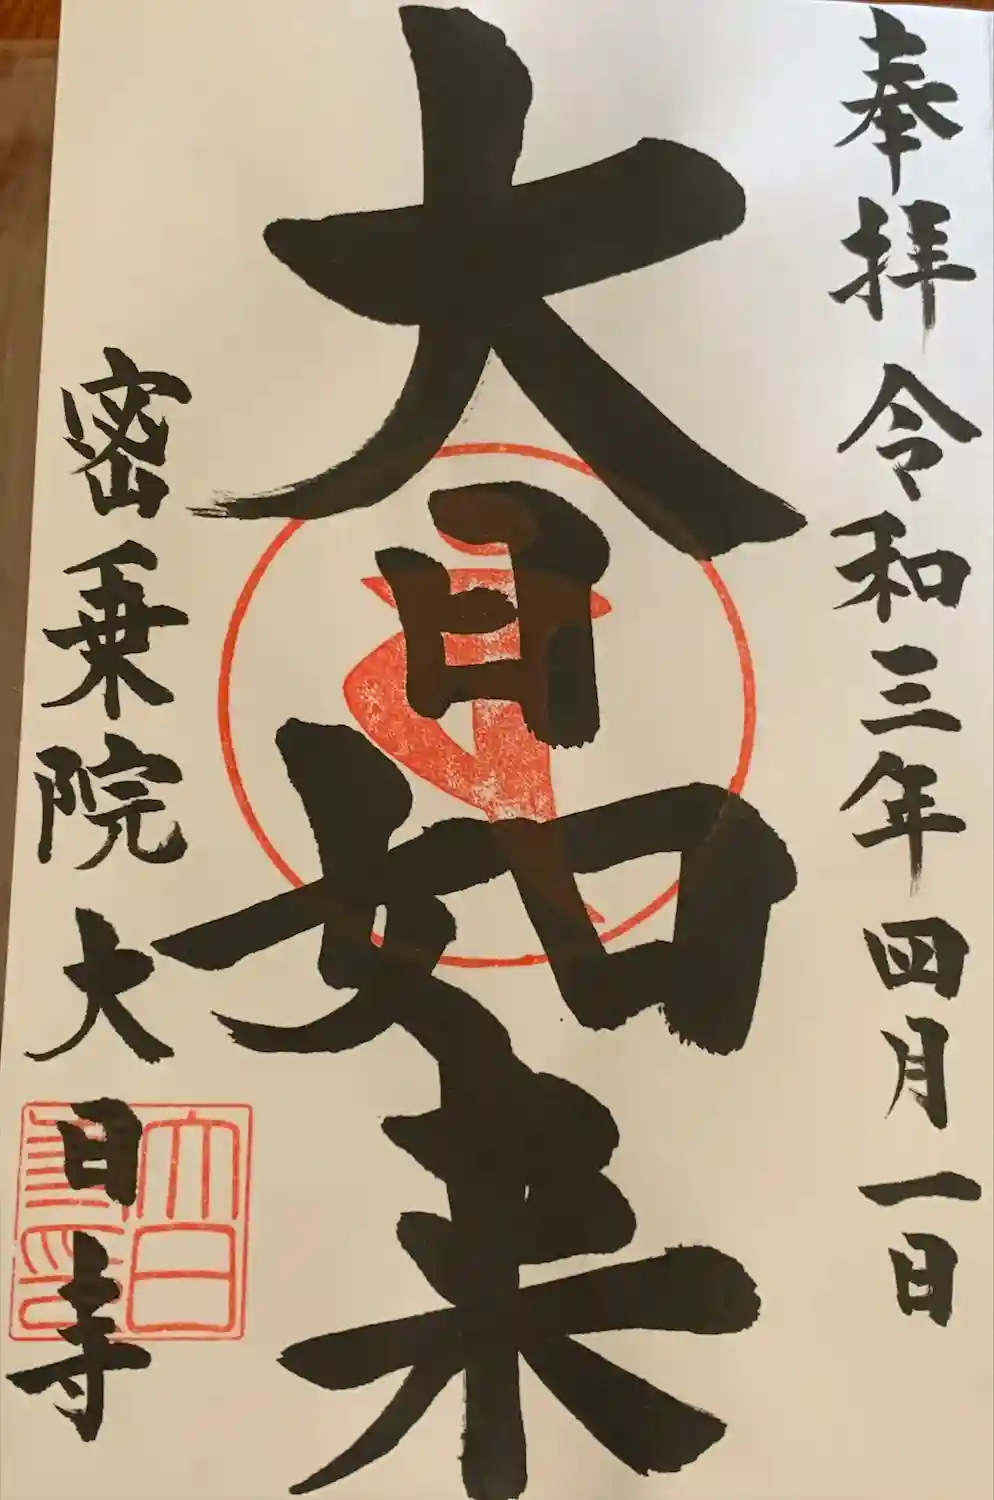 奉拝 令和三年四月一日
大日如来
密乗院 大日寺
大日寺印